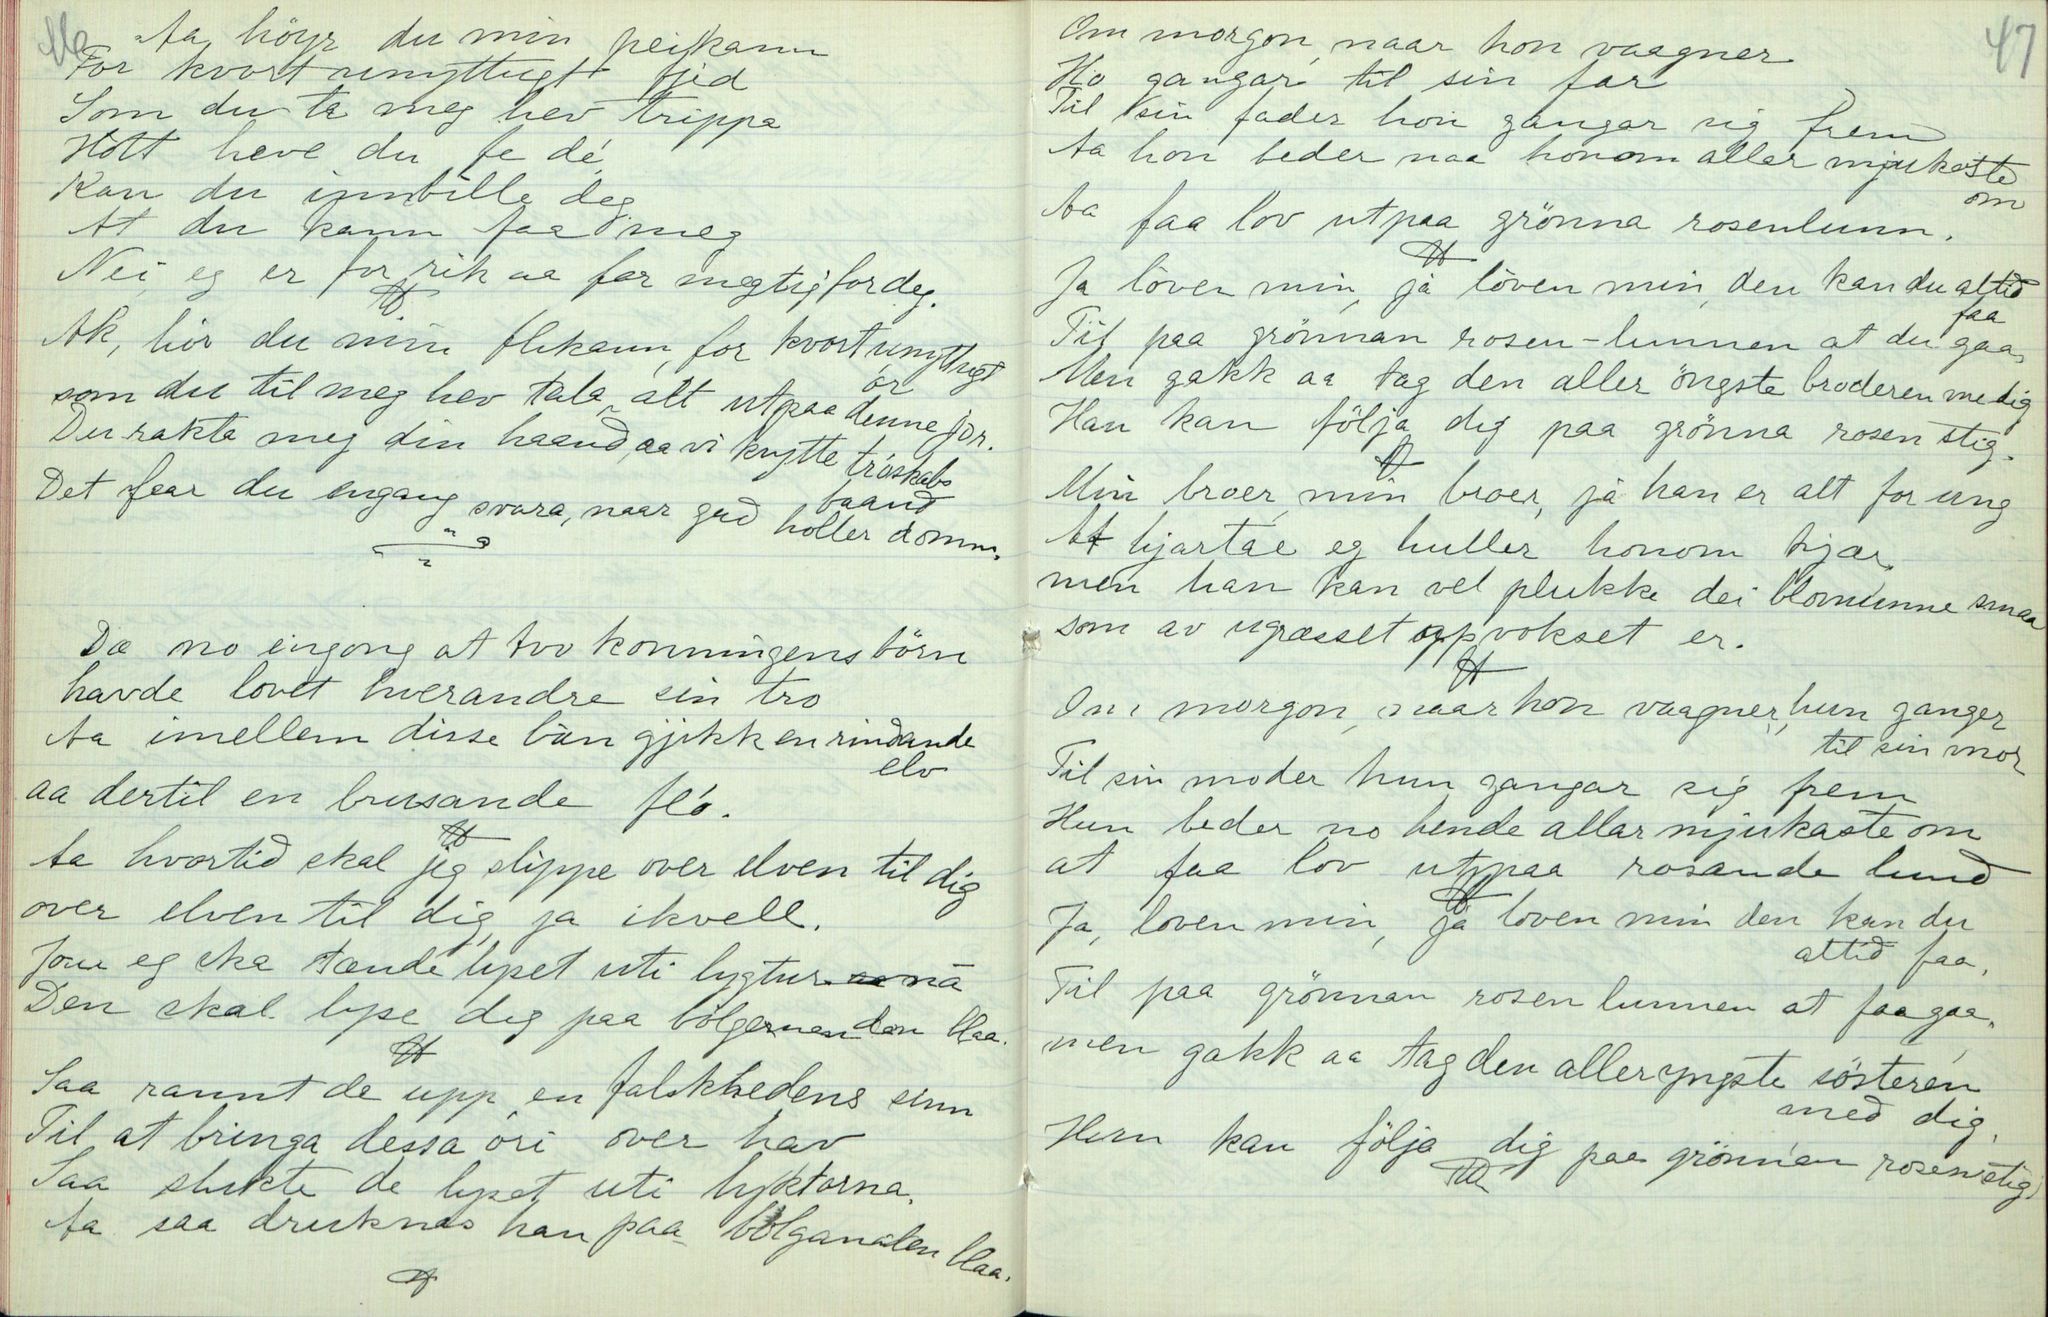 46
Aa höyr du min peikann
For kvort unyttugt fjed
Som du te meg hev trippa
Hott heve du fe dé
Kan du innbille deg
At du kann faa meg
Nei, eg er for rik aa for megtig for deg.
Ak, hör du min flikann, for kvort unyttugt
ór
som du til meg hev tala, alt utpaa denne jor.
Du rakte meg din haand, aa vi knytte tróskabs
baand
Det fear du engang svara, naar gud holler domm.
Dæ no eingong at tvo konningens börn
havde lovet hverandre sin tro
Aa imellem disse bån gjikk en rindande
elv
aa dertil en brusande fló.
Aa hvortid skal jeg slippe over elven til dig
over elven til dig, ja ikvell.
Jou eg ska tænde lyset uti lygtur nå
Den skal lyse deg paa bölgernan den blaa.
Saa rannt de upp en falskhedens sinn
Til at bringa dessa óri over hav
Saa slukte de lyset uti lyktorna.
Aa saa druknas han paa bölganalen blaa.
47
Om morgon, naar hon vaagner
Ho gangar til sin far
Til sin fader hon gangar sig frem
Aa hon beder naa honom allar mjukaste
om
Aa faa lov utpaa grönna rosenlunn.
Ja löven min, já löven min, den kan du altid
faa
Til paa grönnan rosen-lunnen at du gaa,
Men gakk aa tag den aller öngste broderen me dig
Han kan följa dig paa grönna rosen stig.
Min broer, min broer, já han er alt for ung
At hjartæ eg huller honom kjær,
men han kan vel plukke dei blomunne smaa
som av ugræsset oppvokset er.
Om morgon, naar hon vaagner, hun ganger
til sin mor
Til sin moder hun gangar sig frem
Hun beder no hende allar mjukaste om
at faa lov utpaa rosande lund
Ja, loven min, já loven min den kan du
altid faa,
Til paa grönnan rosen lunnen at faa gaa,
men gakk aa tag den aller yngste sósteren
med dig,
Hun kan följa dig paa grönnan rosenstig